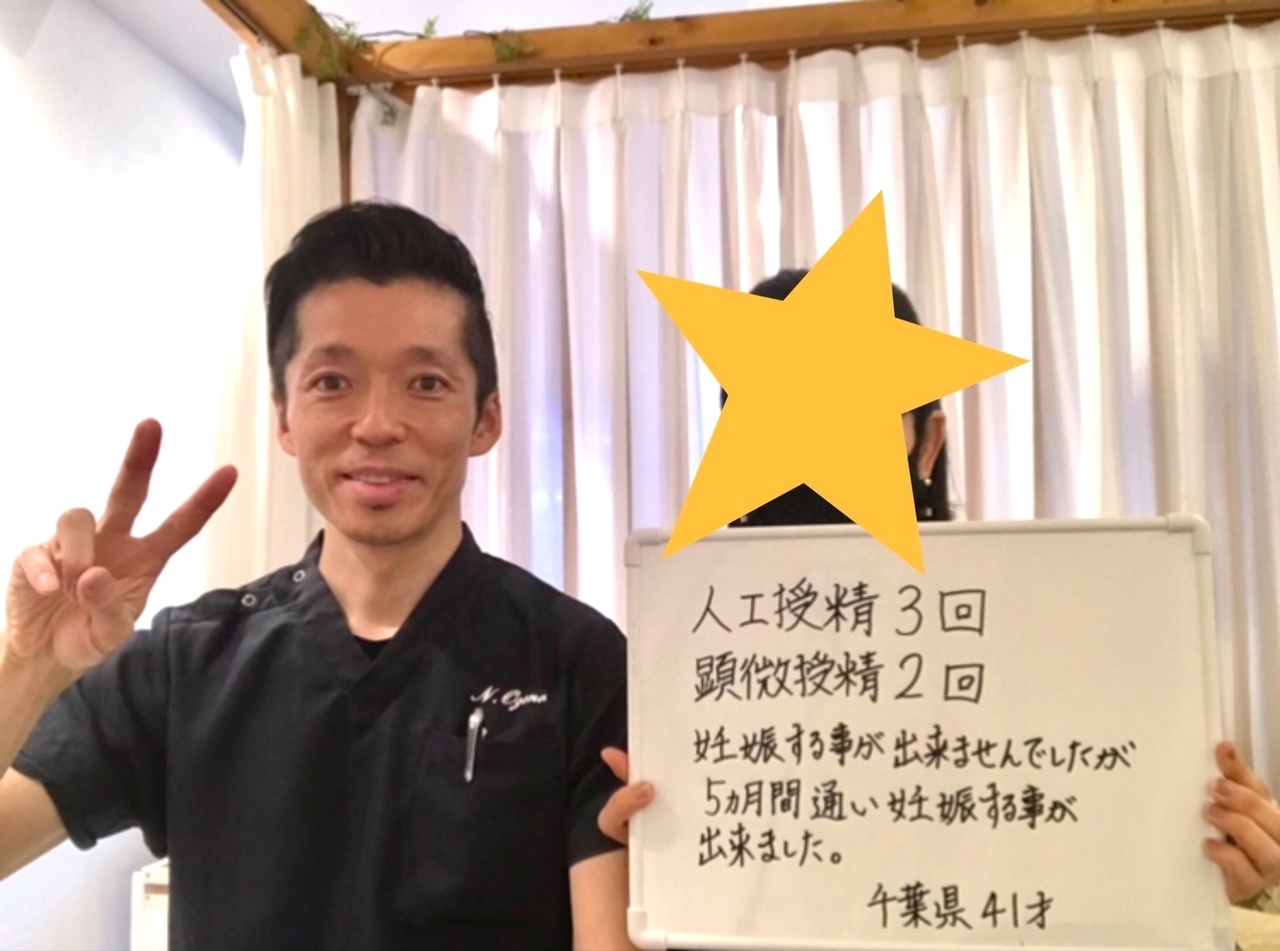 人工授精3回
顕微授精2回
妊娠する事が出来ませんでしたが
5ヵ月間通い妊娠する事が
出来ました。
千葉県41才